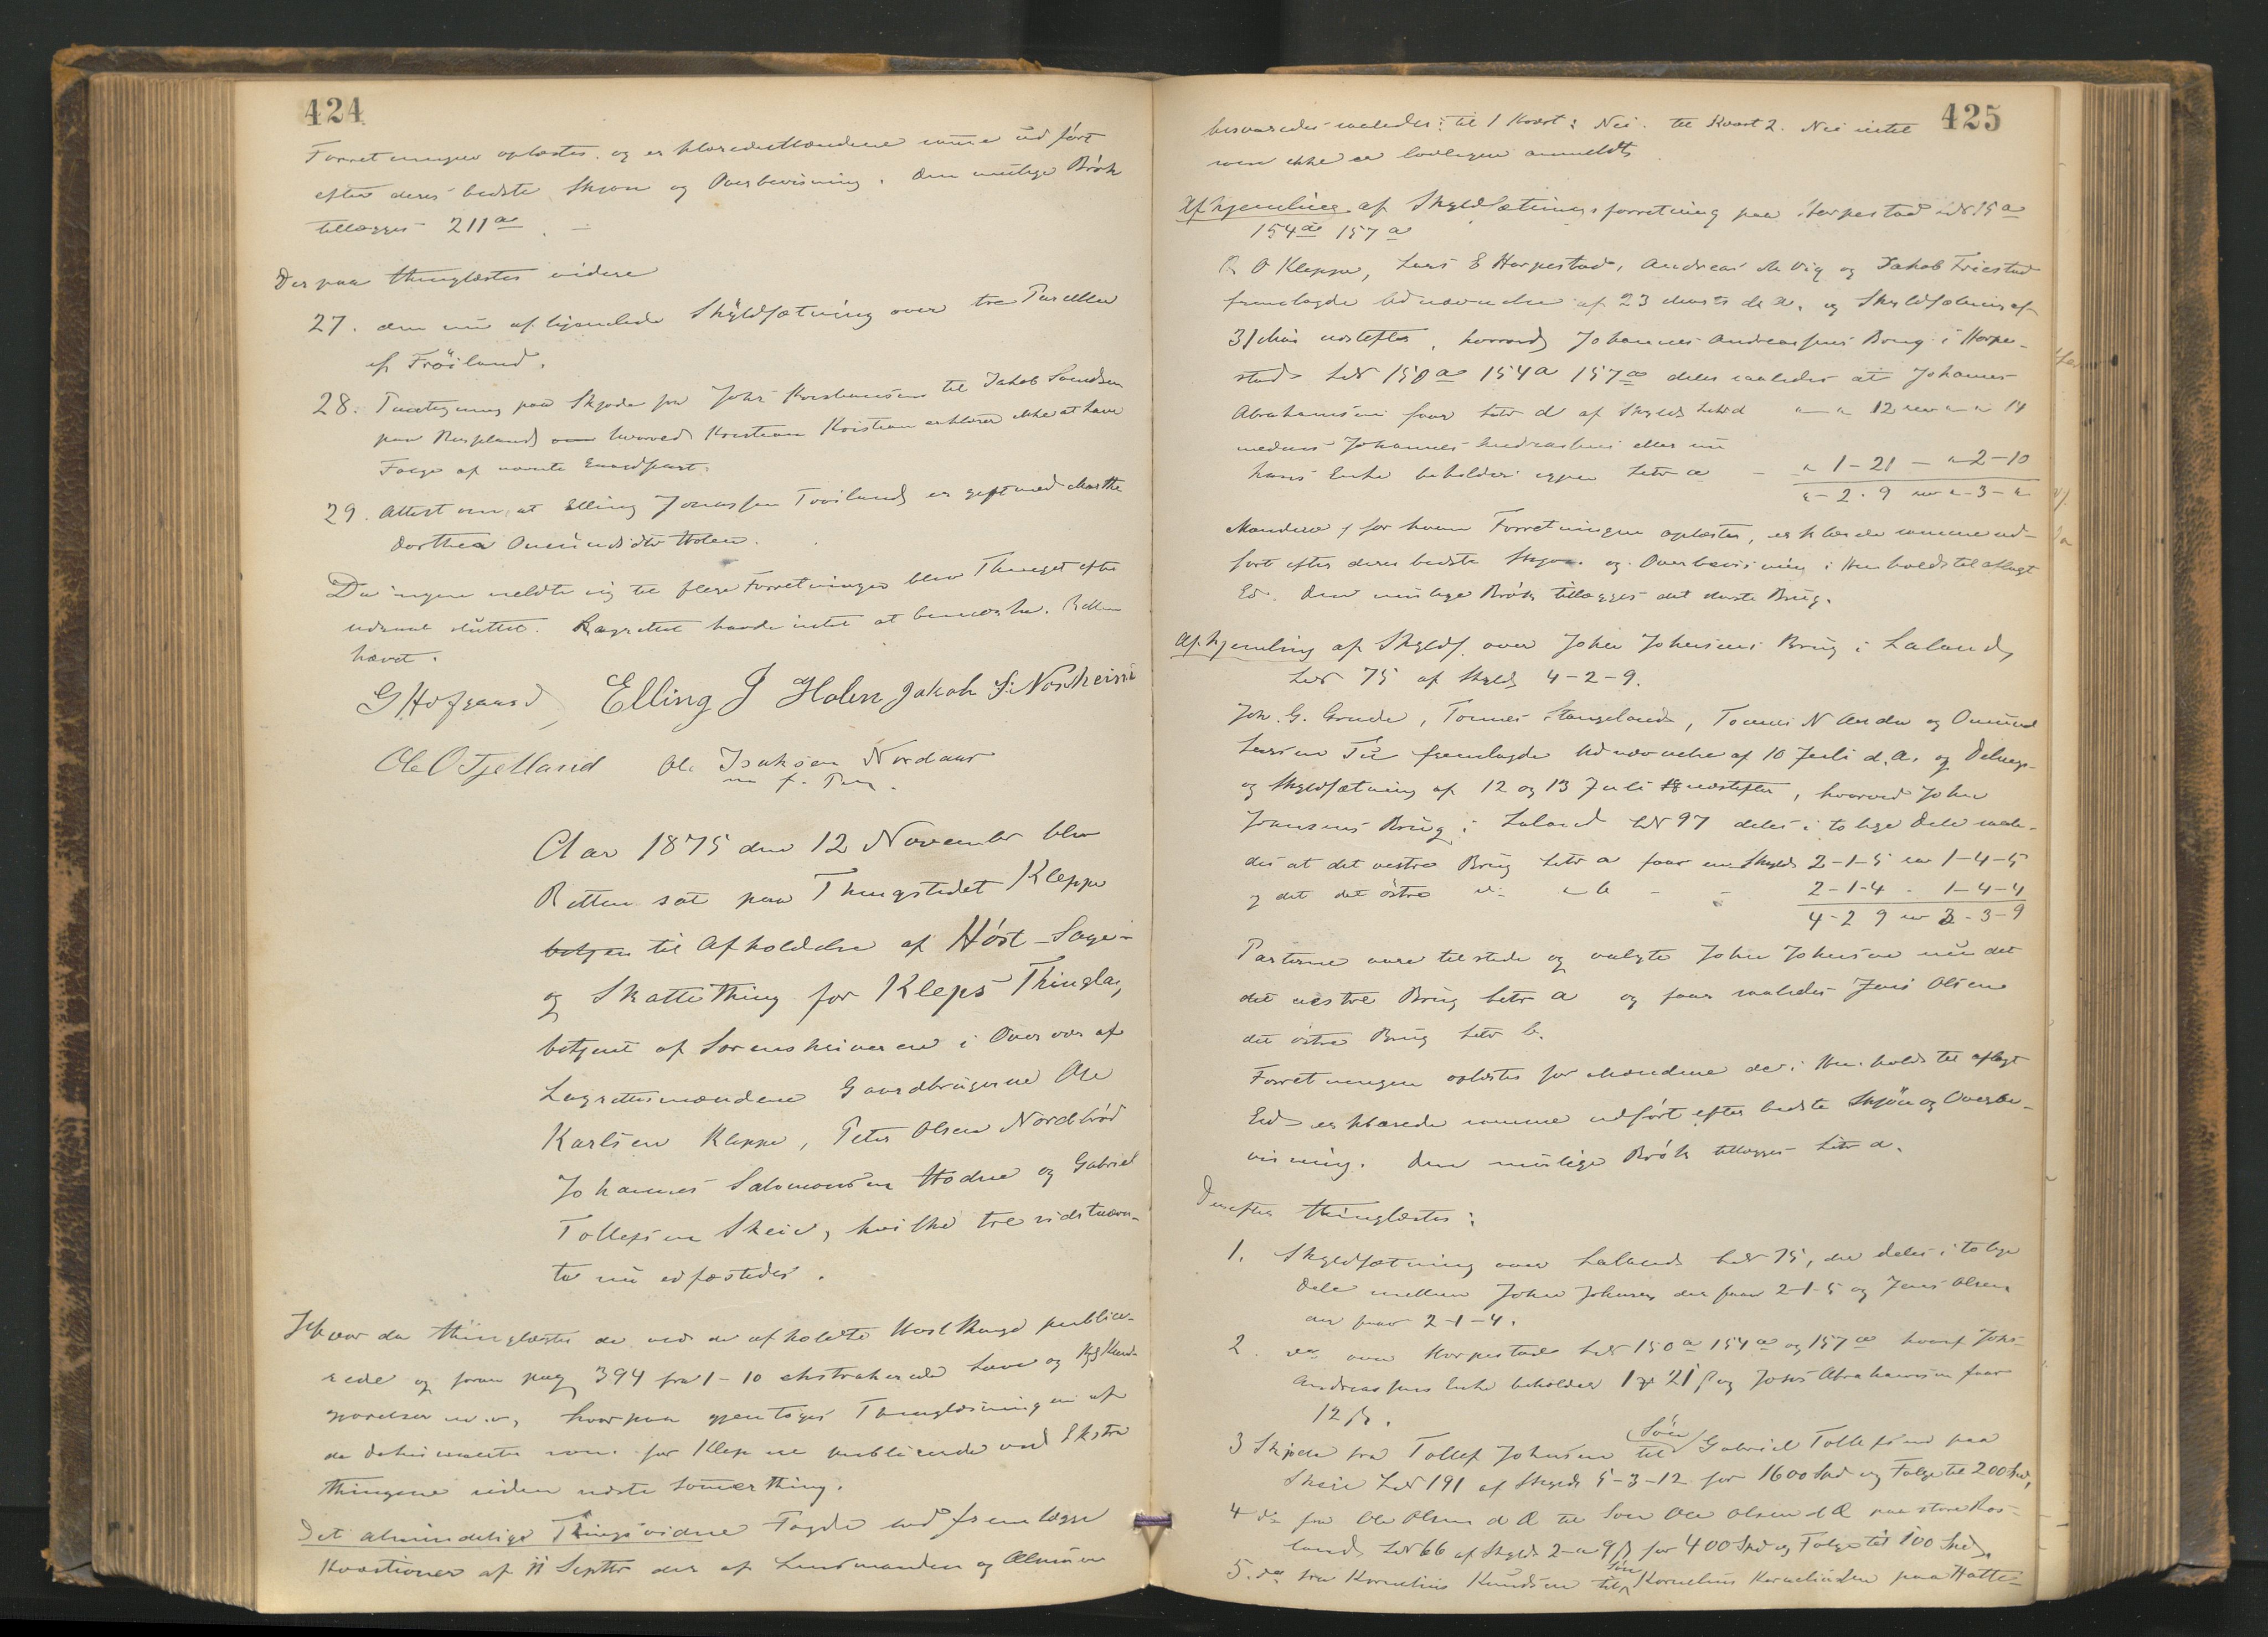 424
Forretningen oplæstes og erklærede Mændene samme udført
efter deres bedste Skjøn og Overbevisning. Den mulige Brøk
tillægges 211a
Der paa thinglæstes videre
27. den nu afhjemlede Skyldsætning over tre Parseller
af Fröiland.
28. paa Skjøde fra Johs til Jakob Svendsen
paa hvorved Kristian erklærer ikke at have
af nævnte
29. Attest om at Elling Jonassen er gift med Marthe
Dorthea Omundsdtr Holen.
Da ingen meldte sig til flere Forretninger blev Thinget efter
sluttet. Lagrettet havde intet at bemærke. Retten
hævet.
G Hofgaard Elling J Holen Jakob S. Nordheim
Ole O Tjelland Ole Isaksen Nordaas
m. f. Pen.
Aar 1875 den 12 November blev
Retten sat paa Thingstedet Kleppe
betjen til Afholdelse af Höst- Sage-
og Skattething for Kleps Thinglag,
betjent af Sorenskriveren i Overvær af
Lagrettesmændene Gaardbrugerne Ole
Karlsen Kleppe, Peter Olsen Nordbrød
Johannes Salomonsen Hodne og Gabriel
Tollefsen Skeie, hvilke tre sidstnævn-
te nu edfæstedes.
Hvor da thinglæstes de ved de afholdte Høstthinge publice-
rede og foran pag 394 fra 1-10 ekstraherede Love og Kund-
gjørelser m. v., hvorpaa gjentoges Thinglæsningen af
de Dokumenter som for Klep ere publicerede ved Ekstra
thingene siden sidste Sommerthing.
Det almindelige Thingsvidne Fogden lod fremlægge
Kvæstioner af 11 Septbr der af Lensmanden og Almuen
425
besvaredes saaledes: til 1 Kvæst: Nei. til Kvæst 2. Nei intet
som ikke er lovligen anmeldt
Afhjemling af Skyldsætningsforretning paa Horpestad LNr 150a
154a 157a
R O Kleppe, Lars E Horpestad, Andreas Vig og Jakob Friestad
fremlagde Udnævnelse af 23 Marts d. A. og Skyldsætning af
31 Mai næstefter, hvorved Johannes Andreassens Brug i Horpe-
stad LNr 150a 154a 157a deles saaledes at Johannes
Abrahamsen faar Litr d af Skyld 12 14
medens Johannes Andreassens eller nu
hans Enke beholder igjen Litr a - " 1-21 - " 2-10
" - 2 . 9 " - 3 - "
Mændene, for hvem Forretningen oplæstes, erklærede samme ud-
ført efter deres bedste Skjøn og Overbevisning i Henhold til aflagt
Ed. Den mulige Brøk tillægges det største Brug.
Afhjemling af Skyldf. over John Johnsens Brug i Laland,
LNr 75 af Skyld 4-2-9.
Joh. G. Grude, Tønnes Stangeland, Tønnes N Aarda og Omund
Larsen Tu fremlagde Udnævnelse af 10 Juli d. A. og Delings-
og Skyldsætning af 12 og 13 Juli næstefter, hvorved John
Johnsens Brug i Laland LNr 97 deles i to lige Dele saale-
des at det vestre Brug Litr a faar en Skyld 2-1-5 1-4-5
og det østre " b - - 2-1-4 - 1-4-4
4-2 9 3-3-9
Parterne vare tilstede og valgte John Johnsen
det vestre Brug Litr a og faar saaledes Jens Olsen
det østre Brug Litr b.
Forretningen oplæstes for Mændene der i Henhold til aflagt
Ed erklærede samme udført efter bedste Skjön og Overbe-
visning. Den mulige Brøk tillægges Litr a.
Derefter thinglæstes:
1. Skyldsætning over Laland LNr 75, der deles i to lige
Dele mellem John Johnsen der faar 2-1-5 og Jens Olsen
der faar 2-1-4.
2. do over Horpestad LNr 150a 154a og 157a hvoraf Johs
Andreassens Enke beholder 1 21 og Johs Abrahamsen faar
12 ß.
3 Skjøde fra Tollef Johnsen til Sön Gabriel Tollefsen paa
Skeie LNr 191 af Skyld 5-3-12 for 1600 Spd og Følge til 200 Spd,
4 do fra Ole Olsen d Æ til Søn Ole Olsen d Æ paa store Ros-
land, LNr 66 af Skyld 2-"9ß for 400 Spd og Følge til 100 Spd,
5. do fra Kornelius Knudsen til Sön Kornelius Korneliussen paa Hatte-